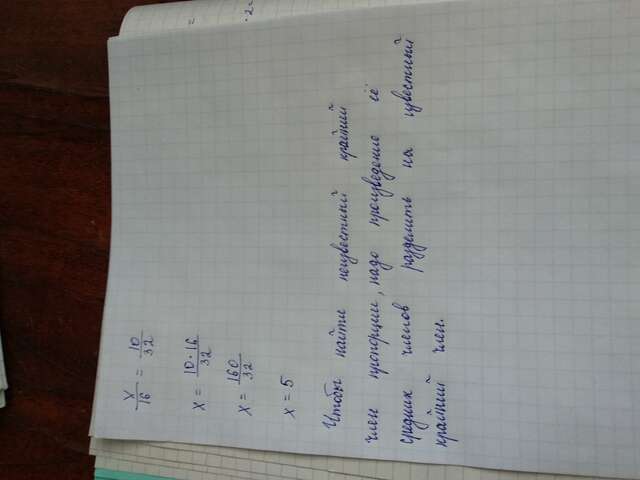 x/16 = 10/32
x = 10·16/32
x = 160/32
x = 5
Чтобы найти неизвестный крайний
член пропорции, надо произведение её
средних членов разделить на известный
крайний член.
=
·2=